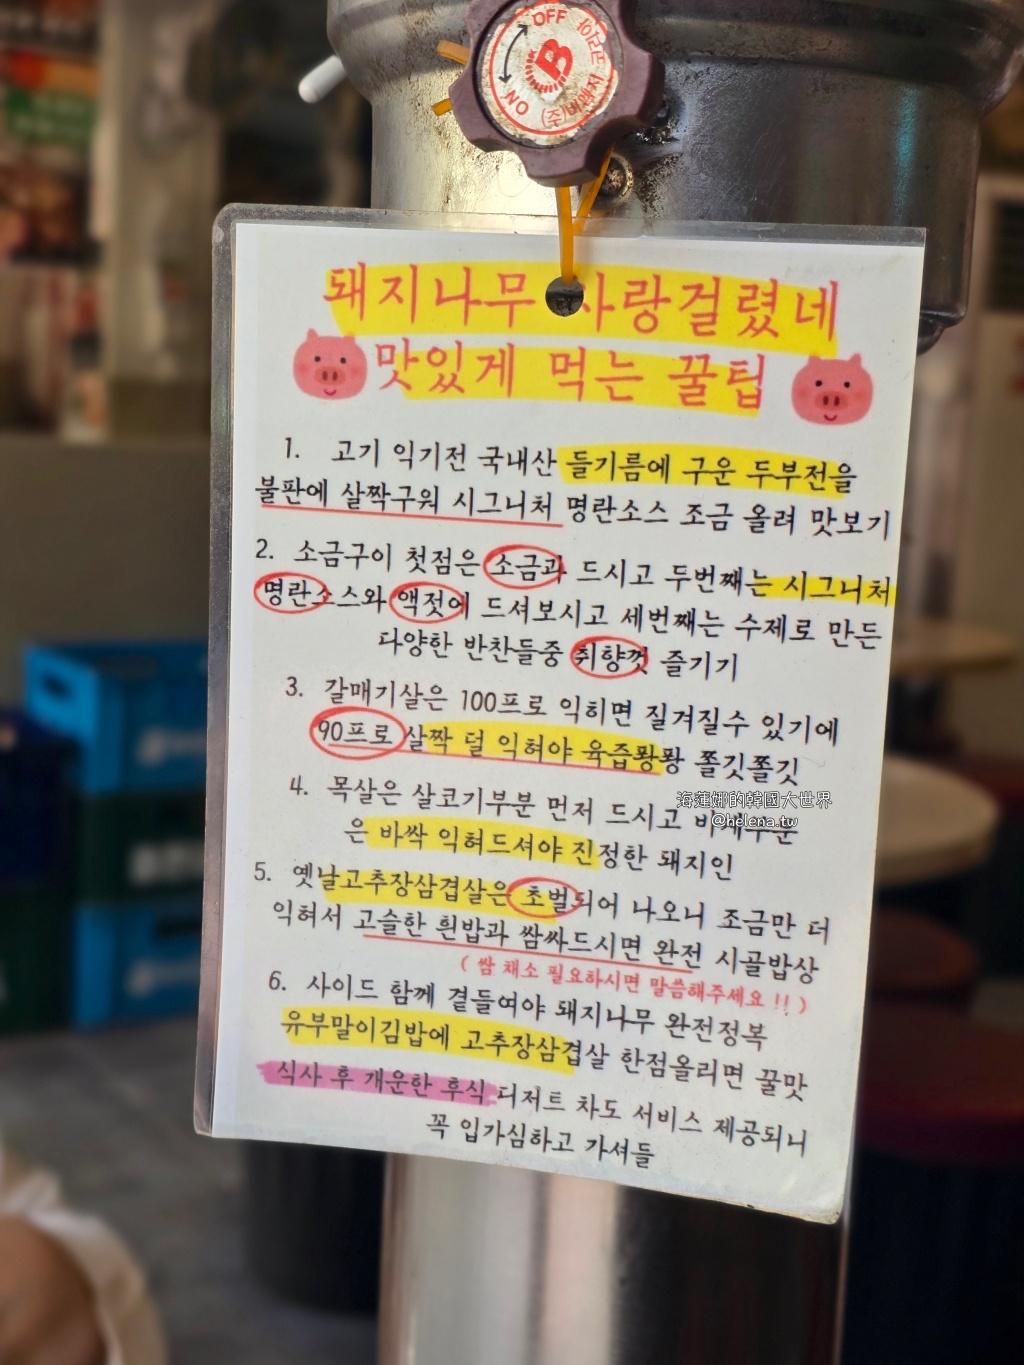 OFF
ON
B
돼지나무 사랑걸렸네
맛있게 먹는 꿀팁
1. 고기 익기전 국내산 들기름에 구운 두부전을
불판에 살짝구워 시그니처 명란소스 조금 올려 맛보기
2. 소금구이 첫점은 소금과 드시고 두번째는 시그니처
명란소스와 액젓에 드셔보시고 세번째는 수제로 만든
다양한 반찬들중 취향껏 즐기기
3. 갈매기살은 100프로 익히면 질겨질수 있기에
90프로 살짝 덜 익혀야 육즙퐝퐝 쫄깃쫄깃
4. 목살은 살코기부분 먼저 드시고 비계부분
은 바싹 익혀드셔야 진정한 돼지인
5. 옛날고추장삼겹살은 초벌되어 나오니 조금만 더
익혀서 고슬한 흰밥과 쌈싸드시면 완전 시골밥상
( 쌈 채소 필요하시면 말씀해주세요 !! )
6. 사이드 함께 곁들여야 돼지나무 완전정복
유부말이김밥에 고추장삼겹살 한점올리면 꿀맛
식사 후 개운한 후식 디저트 차도 서비스 제공되니
꼭 입가심하고 가셔들
海蓮娜的韓國大世界
@helena.tw